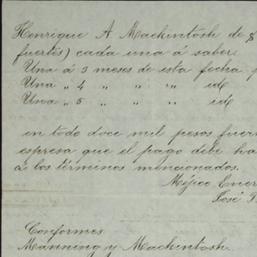 Henrique A Mackintosh de
fuertes) cada una á saber
Una á 3 meses de esta fecha
Una „ 4 „ „ „ id
Una „ 5 „ „ „ id
en todo doce mil pesos fuer
espresa que el pago debe ha
á los términos mencionados.
Méjico Ener
José
Conformes
Manning y Mackintosh